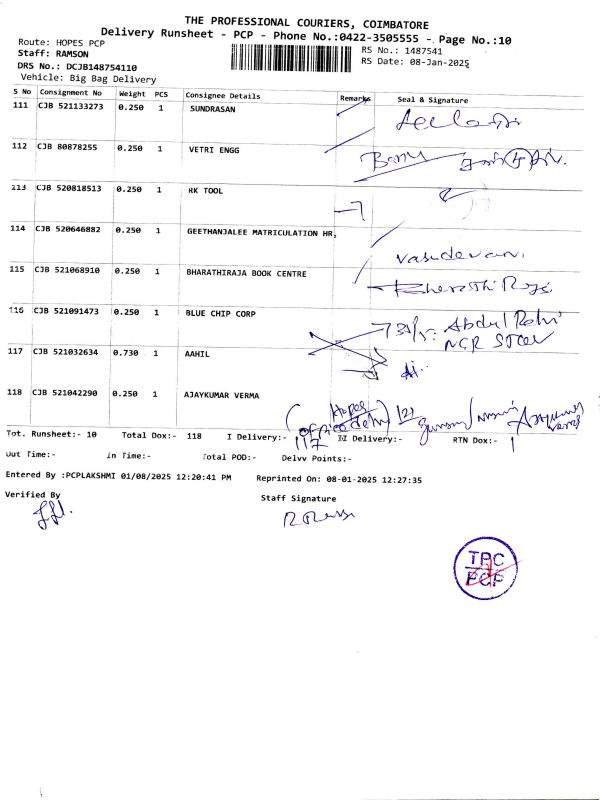 THE PROFESSIONAL COURIERS, COIMBATORE
Delivery Runsheet - PCP - Phone No.:0422-3505555 - Page No.:10
Route: HOPES PCP
Staff: RAMSON
DRS No.: DCJB148754110
Vehicle: Big Bag Delivery
RS No.: 1487541
RS Date: 08-Jan-2025
S No Consignment No Weight PCS Consignee Details Remarks Seal & Signature
111 CJB 521133273 0.250 1 SUNDRASAN
112 CJB 80878255 0.250 1 VETRI ENGG
113 CJB 520818513 0.250 1 RK TOOL
114 CJB 520646882 0.250 1 GEETHANJALEE MATRICULATION HR.
Vasudevan.
115 CJB 521068910 0.250 1 BHARATHIRAJA BOOK CENTRE
116 CJB 521091473 0.250 1 BLUE CHIP CORP
Abdul
117 CJB 521032634 0.730 1 AAHIL
118 CJB 521042290 0.250 1 AJAYKUMAR VERMA
Hopes
Tot. Runsheet:- 10 Total Dox:- 118 I Delivery:- 117 II Delivery:- RTN Dox:- 1
Out Time:- In Time:- Total POD:- Delvv Points:-
Entered By :PCPLAKSHMI 01/08/2025 12:20:41 PM Reprinted On: 08-01-2025 12:27:35
Verified By Staff Signature
TPC
PCP